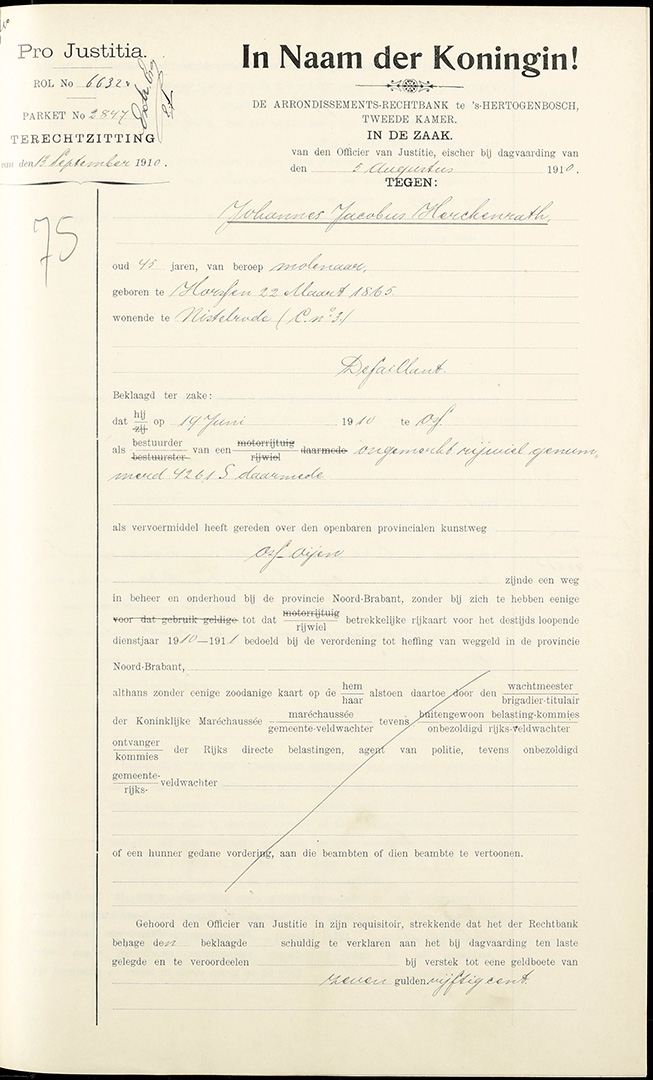 Pro Justitia.
ROL No 6632
PARKET No 2847
TERECHTZITTING
van den 13 September 1910.
75
In Naam der Koningin!
DE ARRONDISSEMENTS-RECHTBANK te 's-HERTOGENBOSCH,
TWEEDE KAMER.
IN DE ZAAK.
van den Officier van Justitie, eischer bij dagvaarding van
den 5 Augustus 1910.
TEGEN:
Johannes Jacobus Herckenrath,
oud 45 jaren, van beroep molenaar,
geboren te Horssen 22 Maart 1865.
wonende te Nistelrode (C. no 3.)
Defaillant.
Beklaagd ter zake:
dat hij
zij op 19 Juni 1910 te Osch
als bestuurder
bestuurster van een motorrijtuig
rijwiel daarmede ongemerkt rijwiel genum-
merd 4261 S daarmede
als vervoermiddel heeft gereden over den openbaren provincialen kunstweg
Osch-Oijen
zijnde een weg
in beheer en onderhoud bij de provincie Noord-Brabant, zonder bij zich te hebben eenige
voor dat gebruik geldige tot dat motorrijtuig
rijwiel betrekkelijke rijkaart voor het destijds loopende
dienstjaar 1910—1911 bedoeld bij de verordening tot heffing van weggeld in de provincie
Noord-Brabant,
althans zonder eenige zoodanige kaart op de hem
haar alstoen daartoe door den wachtmeester
brigadier-titulair
der Koninklijke Maréchaussée maréchaussée
gemeente-veldwachter tevens buitengewoon belasting-kommies
onbezoldigd rijks-veldwachter
ontvanger
kommies der Rijks directe belastingen, agent van politie, tevens onbezoldigd
gemeente-
rijks- veldwachter
of een hunner gedane vordering, aan die beambten of dien beambte te vertoonen.
Gehoord den Officier van Justitie in zijn requisitoir, strekkende dat het der Rechtbank
behage den beklaagde schuldig te verklaren aan het bij dagvaarding ten laste
gelegde en te veroordeelen bij verstek tot eene geldboete van
zeven gulden vijftig cent.